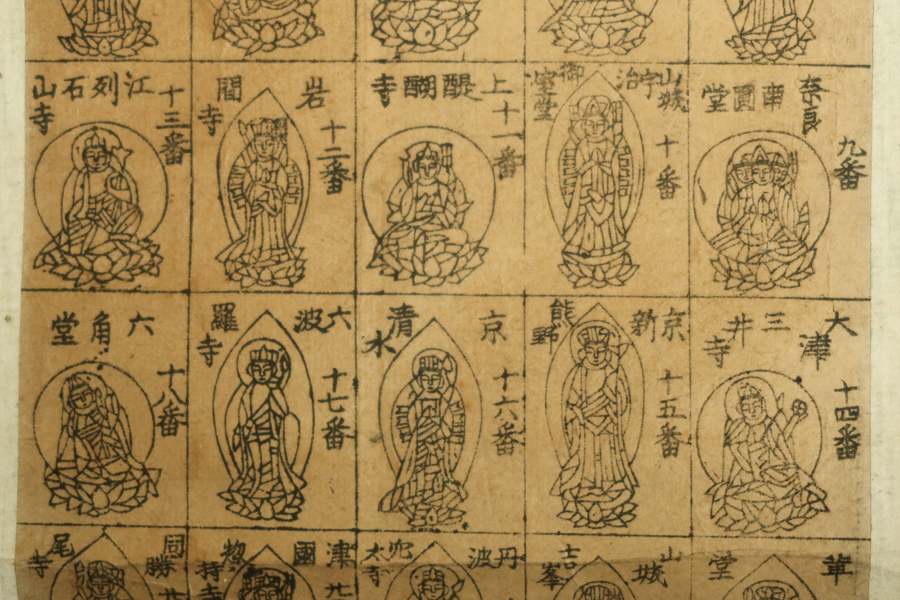 奈良
南圓堂
九番
山城宇治
御室堂
十番
上醍醐寺
十一番
岩間寺
十二番
江列石山寺
十三番
大津
三井寺
十四番
京
新熊野
十五番
京
清水
十六番
六波羅寺
十七番
六角堂
十八番
堂
山城
吉峯
丹波
穴太寺
津國
惣持寺
廿
同
勝尾寺
廿